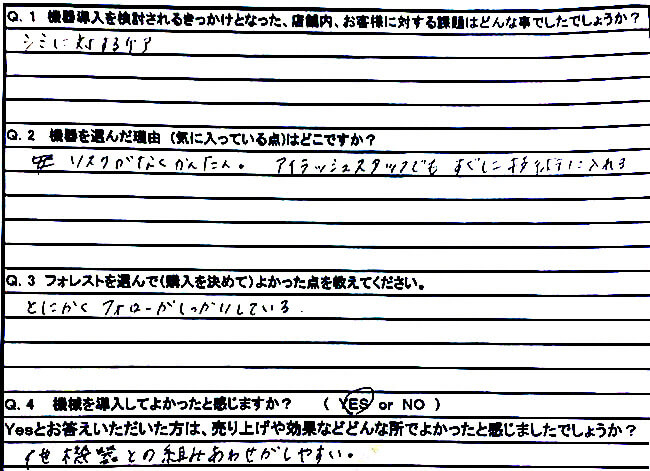 Q. 1 機器導入を検討されるきっかけとなった、店舗内、お客様に対する課題はどんな事でしたでしょうか?
シミに対するケア
Q. 2 機器を選んだ理由 (気に入っている点)はどこですか?
リスクがなくかんたん。 アイラッシュスタッフでも すぐに 入れる
Q. 3 フォレストを選んで(購入を決めて)よかった点を教えてください。
とにかくフォローがしっかりしている.
Q. 4 機械を導入してよかったと感じますか? ( YES or NO )
Yesとお答えいただいた方は、売り上げや効果などどんな所でよかったと感じましたでしょうか?
他機器との組みあわせがしやすい。